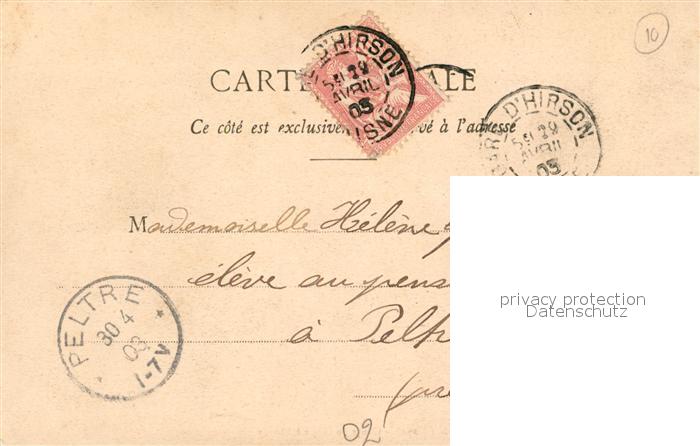 10
CARTE ALE
Ce côté est exclusive vé à l'adresse
D'HIRSON
29
AVRIL
03
AISNE
GARE D'HIRSON
29
AVRIL
03
Mademoiselle Hélène
élève au pens
à Pelt
PELTRE
30 4
03
1-7V
02
privacy protection
Datenschutz